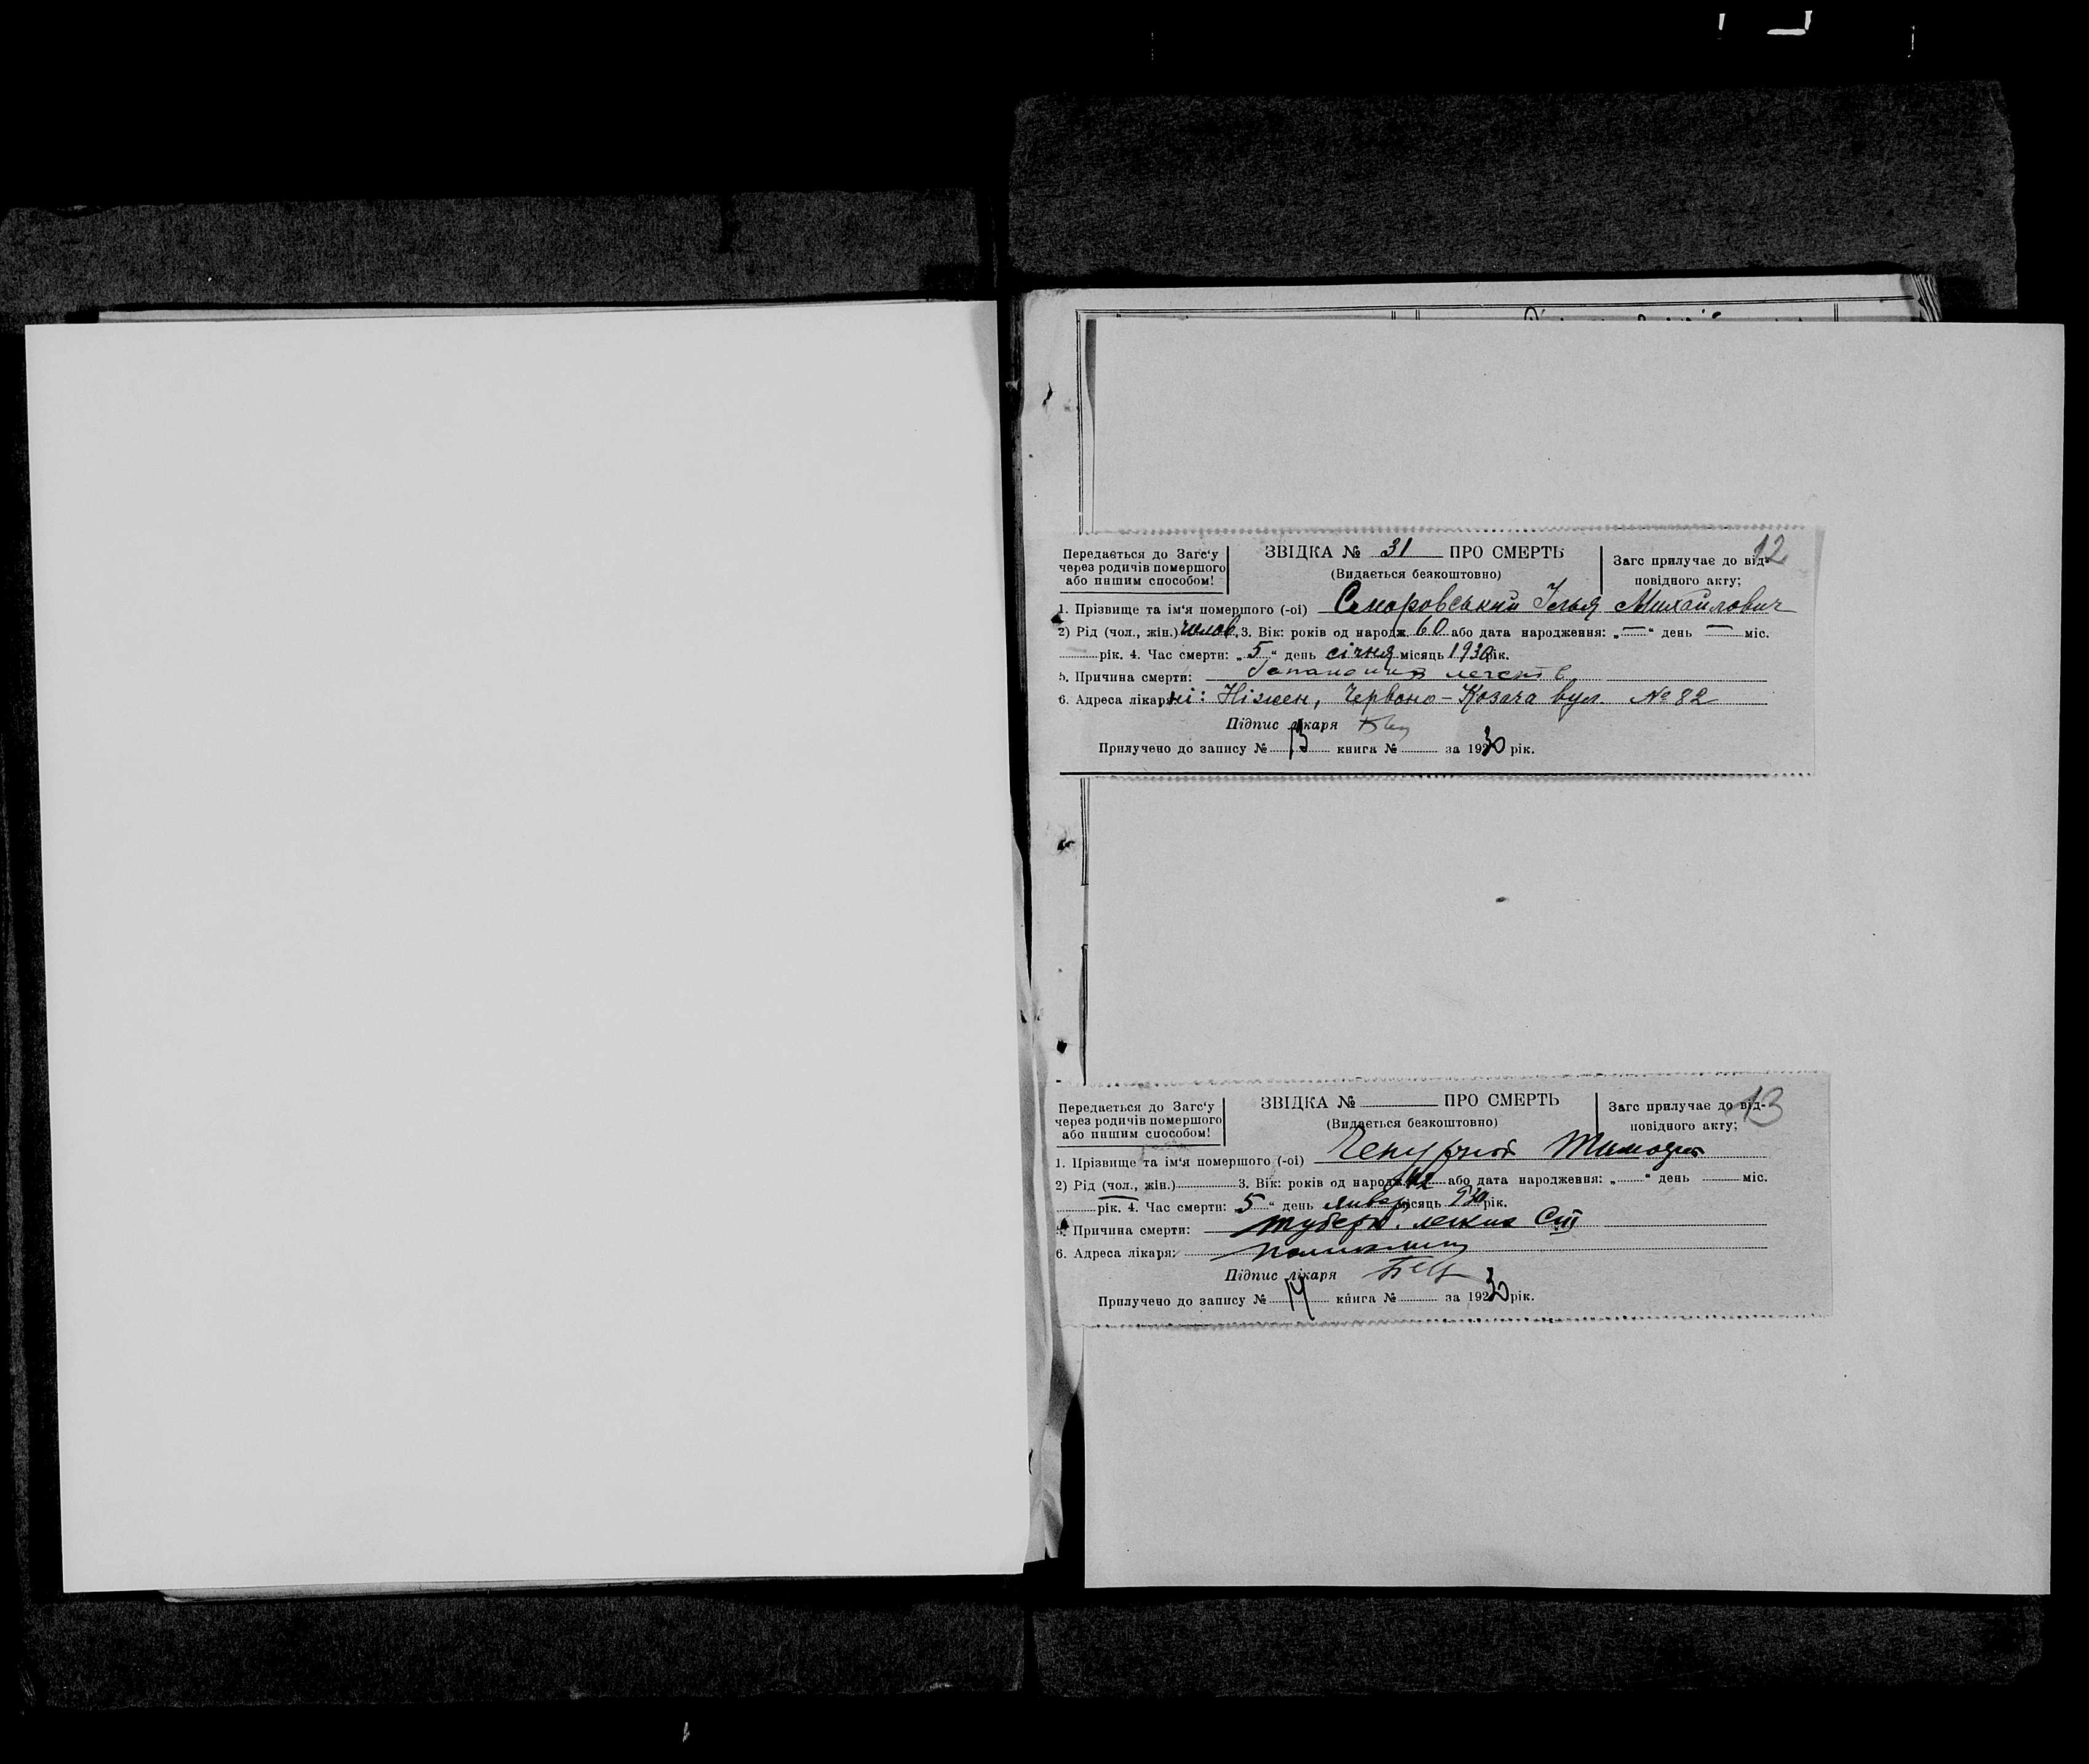 12
Передається до Загс'у
через родичів помершого
або иншим способом!
ЗВІДКА № 31 ПРО СМЕРТЬ
(Видається безкоштовно)
Загс прилучає до від-
повідного акту;
1. Прізвище та ім'я помершого (-ої) Ілья Михайлович
2) Рід (чол., жін.) чолов. 3. Вік: років од народж. 60 або дата народження: „—" день — міс.
рік. 4. Час смерти: „5" день січня місяць 1930 рік.
5. Причина смерти:
6. Адреса лікарні: Ніжен, Червоно-Козача вул. № 82
Підпис лікаря
Прилучено до запису № 13 книга № за 1930 рік.
13
Передається до Загс'у
через родичів помершого
або иншим способом!
ЗВІДКА № ПРО СМЕРТЬ
(Видається безкоштовно)
Загс прилучає до від-
повідного акту;
1. Прізвище та ім'я помершого (-ої) Чепурной Тимофей
2) Рід (чол., жін.) 3. Вік: років од народж. 42 або дата народження: „ " день міс.
рік. 4. Час смерти: 5 " день январ місяць 930 рік.
5. Причина смерти: туберк. легких Ст III
6. Адреса лікаря:
Підпис лікаря
Прилучено до запису № 14 книга № за 1930 рік.